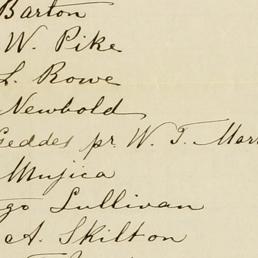 Barton
W. Pike
L. Rowe
Newbold
Geddes pr. W. T. Mar
Mujica
go Sullivan
A. Skilton